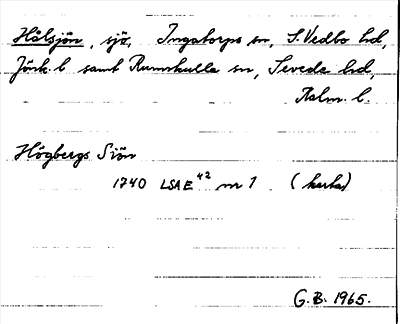 Hålsjön, sjö, Ingatorps sn, S. Vedbo hd,
Jönk. l. samt Rumskulla sn, Sevede hd,
Kalm. l.
Högbergs Siön
1740 LSA E 42 nr 1 (karta)
G. B. 1965.